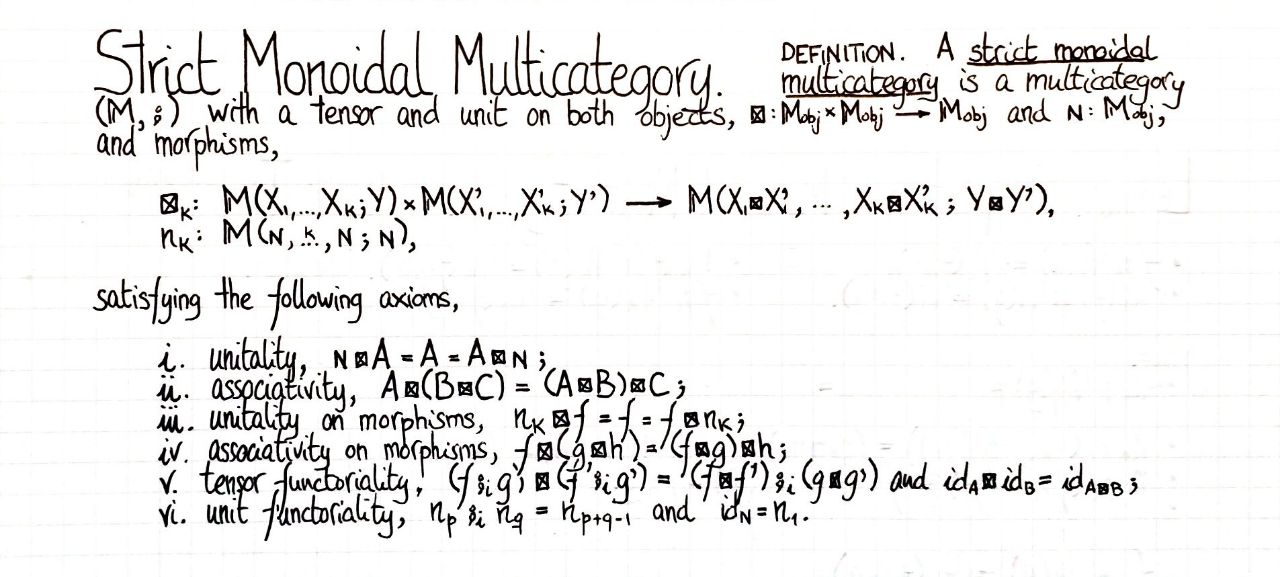 Strict Monoidal Multicategory. DEFINITION. A strict monoidal
multicategory is a multicategory
(M, ⨾) with a tensor and unit on both objects, ⊠: Mobj × Mobj → Mobj and N: Mobj,
and morphisms,
⊠ₖ: M(X₁,...,Xₖ; Y) × M(X'₁,...,X'ₖ; Y') → M(X₁⊠X'₁, ... , Xₖ⊠X'ₖ ; Y⊠Y'),
nₖ: M(N, .ᵏ., N ; N),
satisfying the following axioms,
i. unitality, N⊠A = A = A⊠N ;
ii. associativity, A⊠(B⊠C) = (A⊠B)⊠C ;
iii. unitality on morphisms, nₖ⊠f = f = f⊠nₖ;
iv. associativity on morphisms, f⊠(g⊠h) = (f⊠g)⊠h;
v. tensor functoriality, (f⨾ᵢg) ⊠ (f'⨾ᵢg') = (f⊠f')⨾ᵢ(g⊠g') and id_A⊠id_B = id_A⊠B ;
vi. unit functoriality, n_p⨾ᵢ n_q = n_p+q-1 and id_N = n₁.